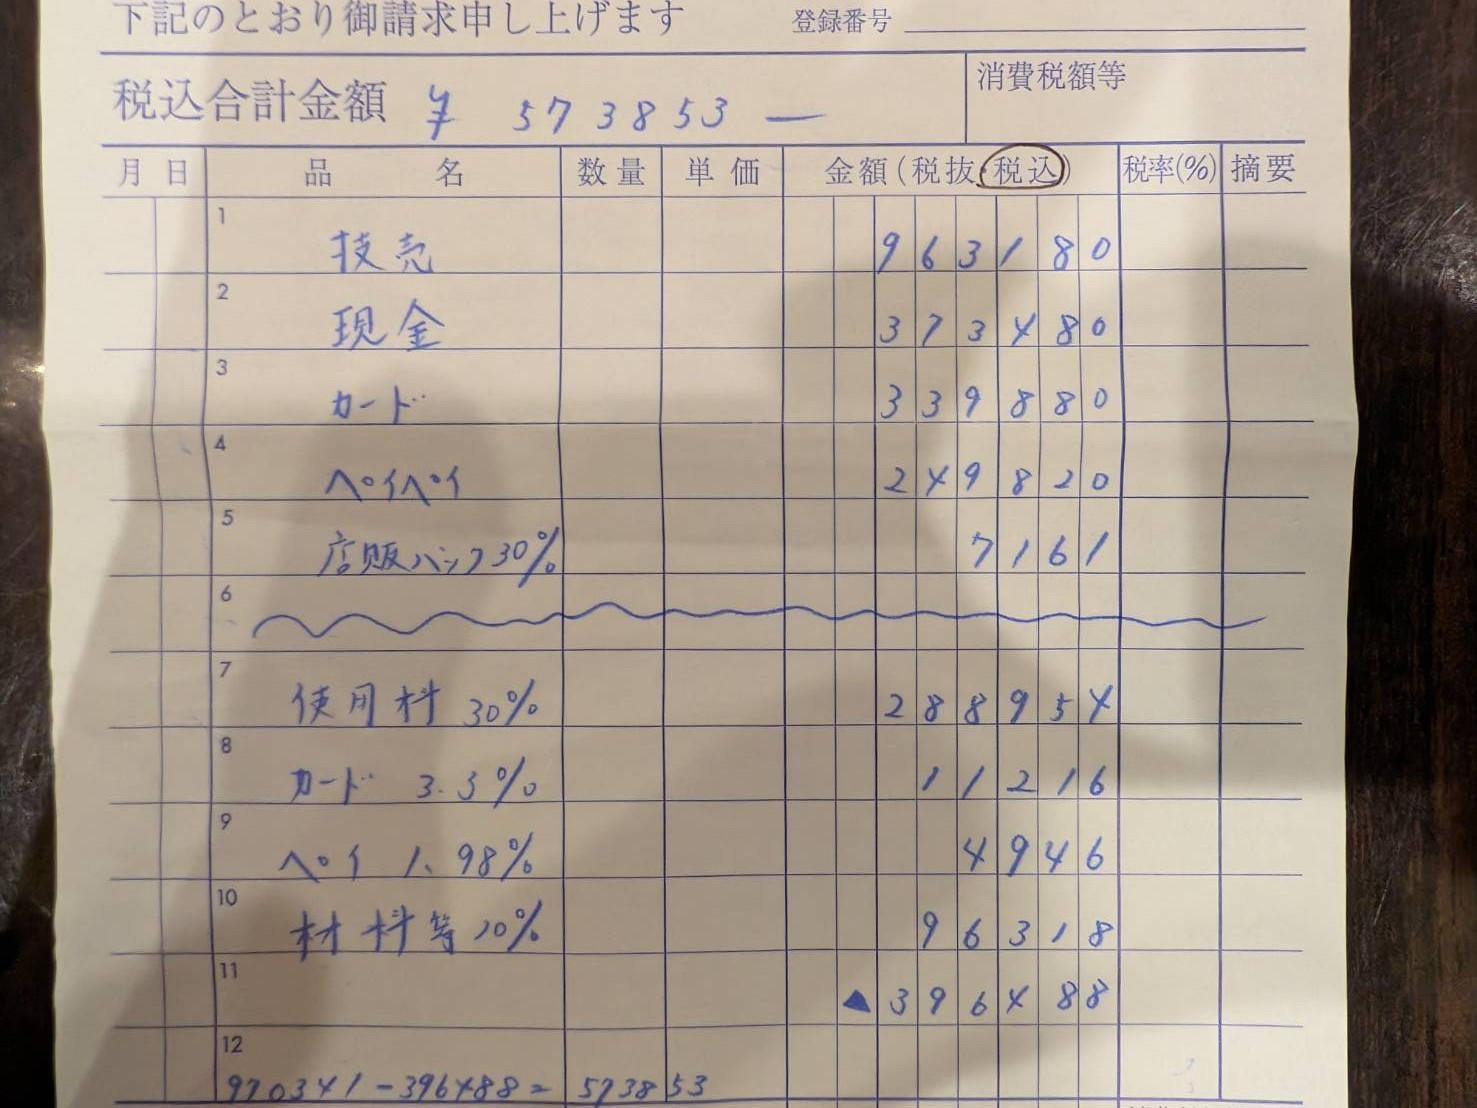 下記のとおり御請求申し上げます 登録番号
税込合計金額 ¥ 573853 — 消費税額等
月 日 品 名 数量 単価 金額(税抜・税込) 税率(%) 摘要
1 技売 963180
2 現金 373480
3 カード 339880
4 ペイペイ 249820
5 店販バック30% 7161
6
7 使用料 30% 288954
8 カード 3.3% 11216
9 ペイ 1.98% 4946
10 材料等10% 96318
11 ▲396488
12 970341-396488=573853